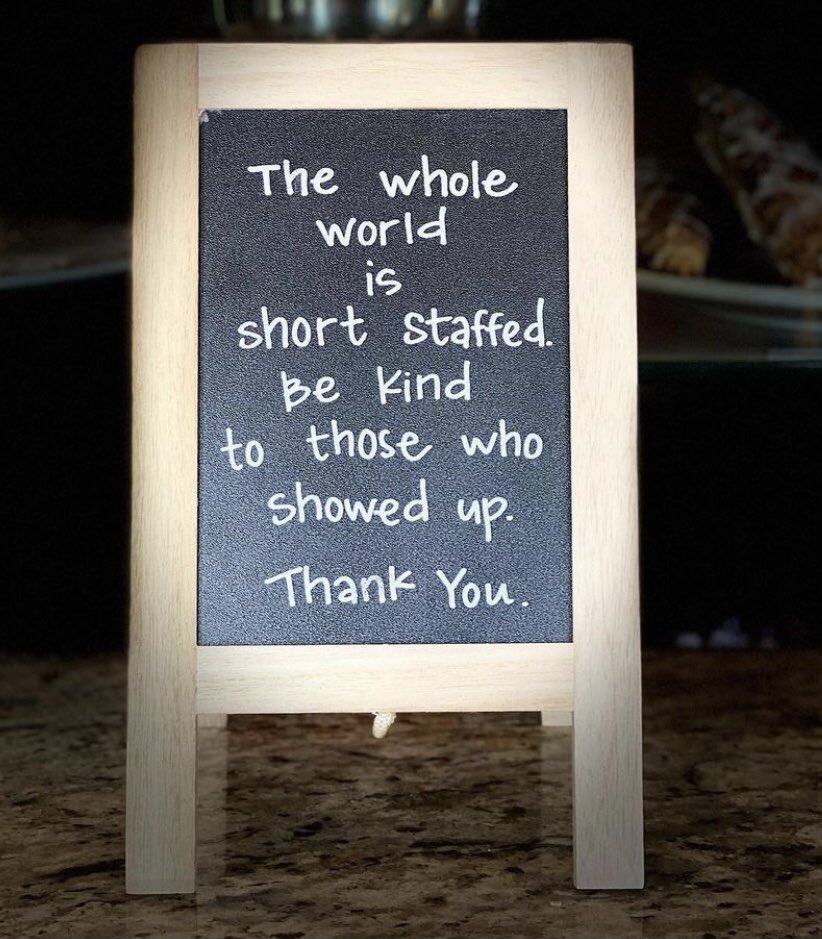 The whole
world
is
short staffed.
Be kind
to those who
showed up.
Thank You.